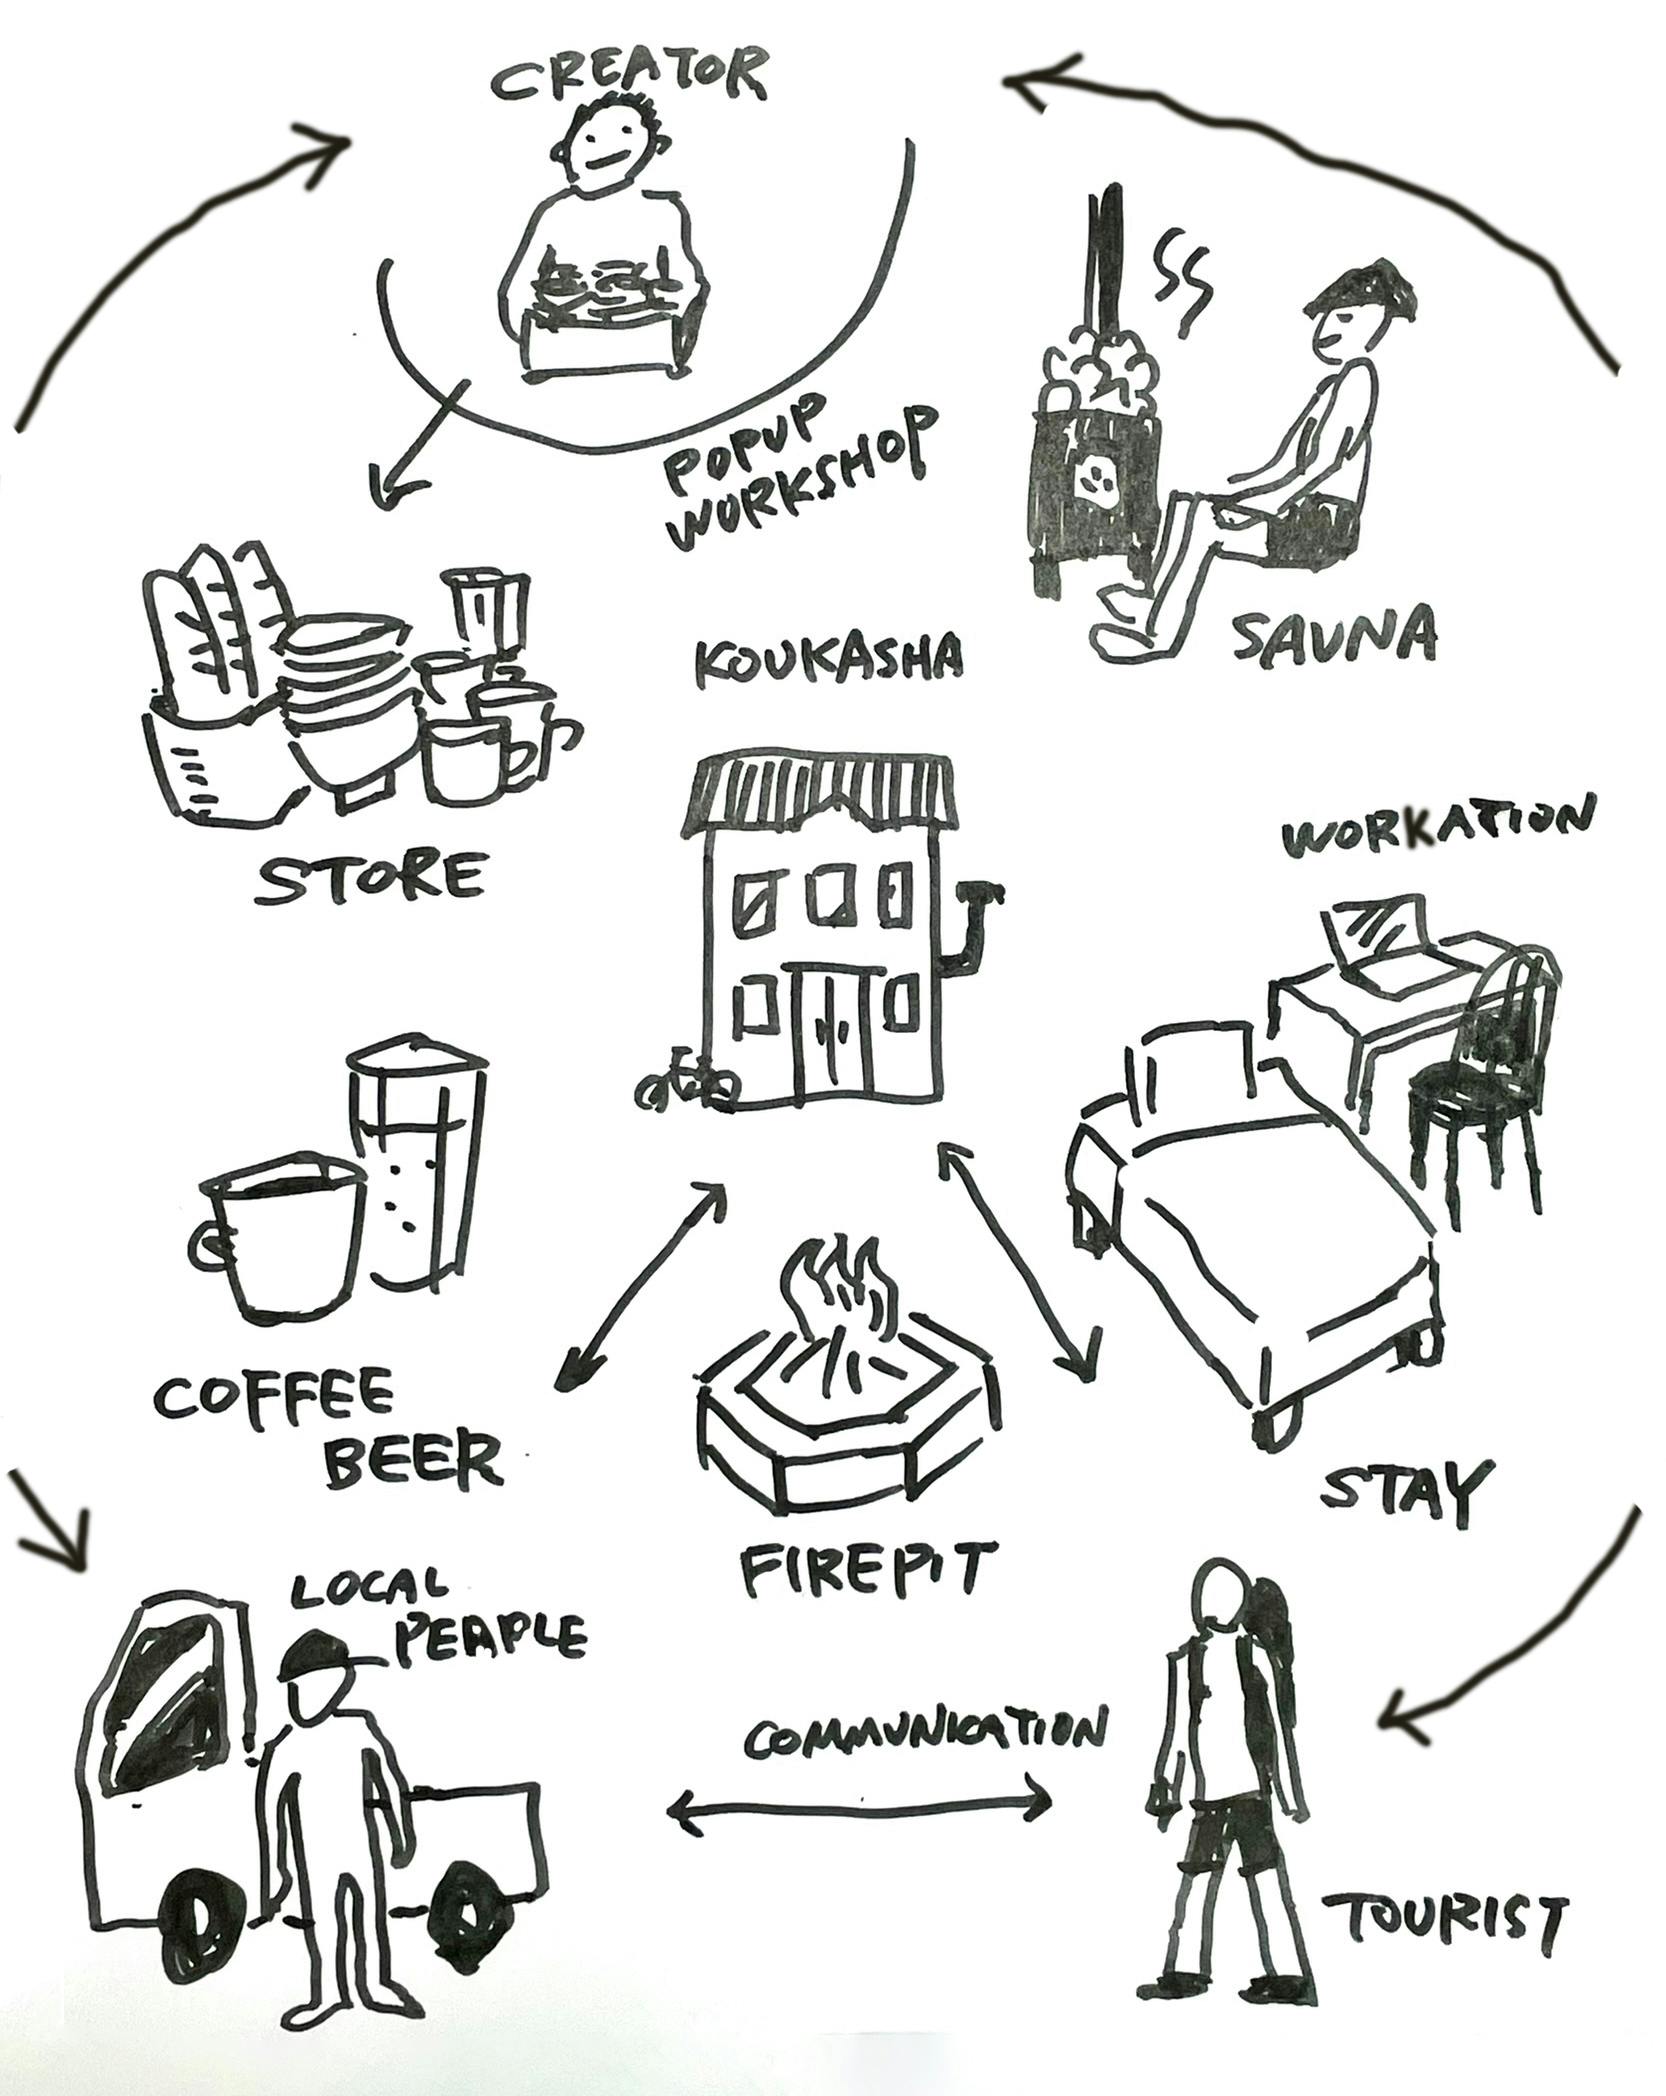 CREATOR
POPUP
WORKSHOP
SAUNA
KOUKASHA
STORE
WORKATION
COFFEE
BEER
STAY
FIREPIT
LOCAL
PEAPLE
COMMUNICATION
TOURIST